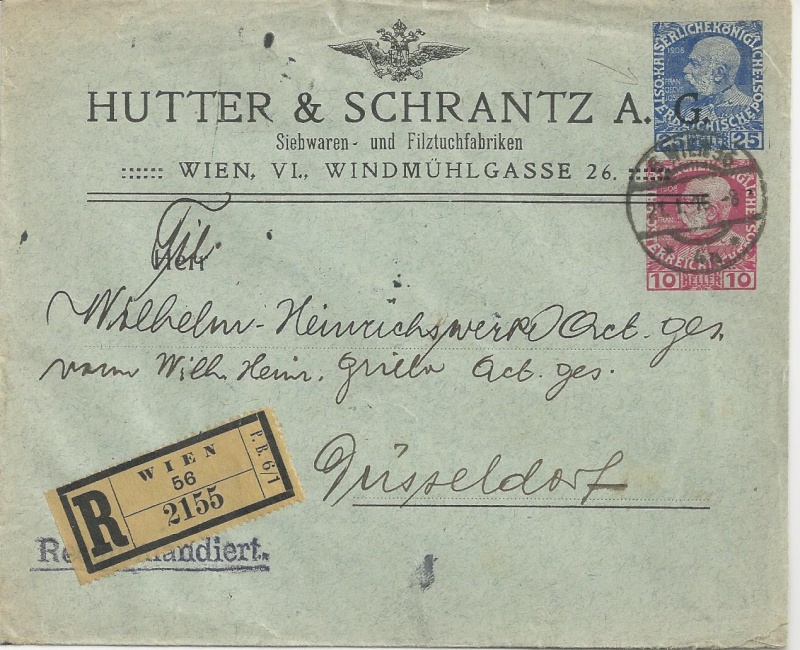 HUTTER & SCHRANTZ A. G.
Siebwaren- und Filztuchfabriken
WIEN, VI., WINDMÜHLGASSE 26.
KAISERLICHE KÖNIGLICHE
1908
25
WIEN 56
1908
HELLER
10 10
Tit.
Herr
Wilhelm-Heinrichswerk Act. ges.
vorm Wilh. Heinr. Grillo Act. ges.
Düsseldorf
R
WIEN
56
2155
P. B. 6/1
Rekommandiert.